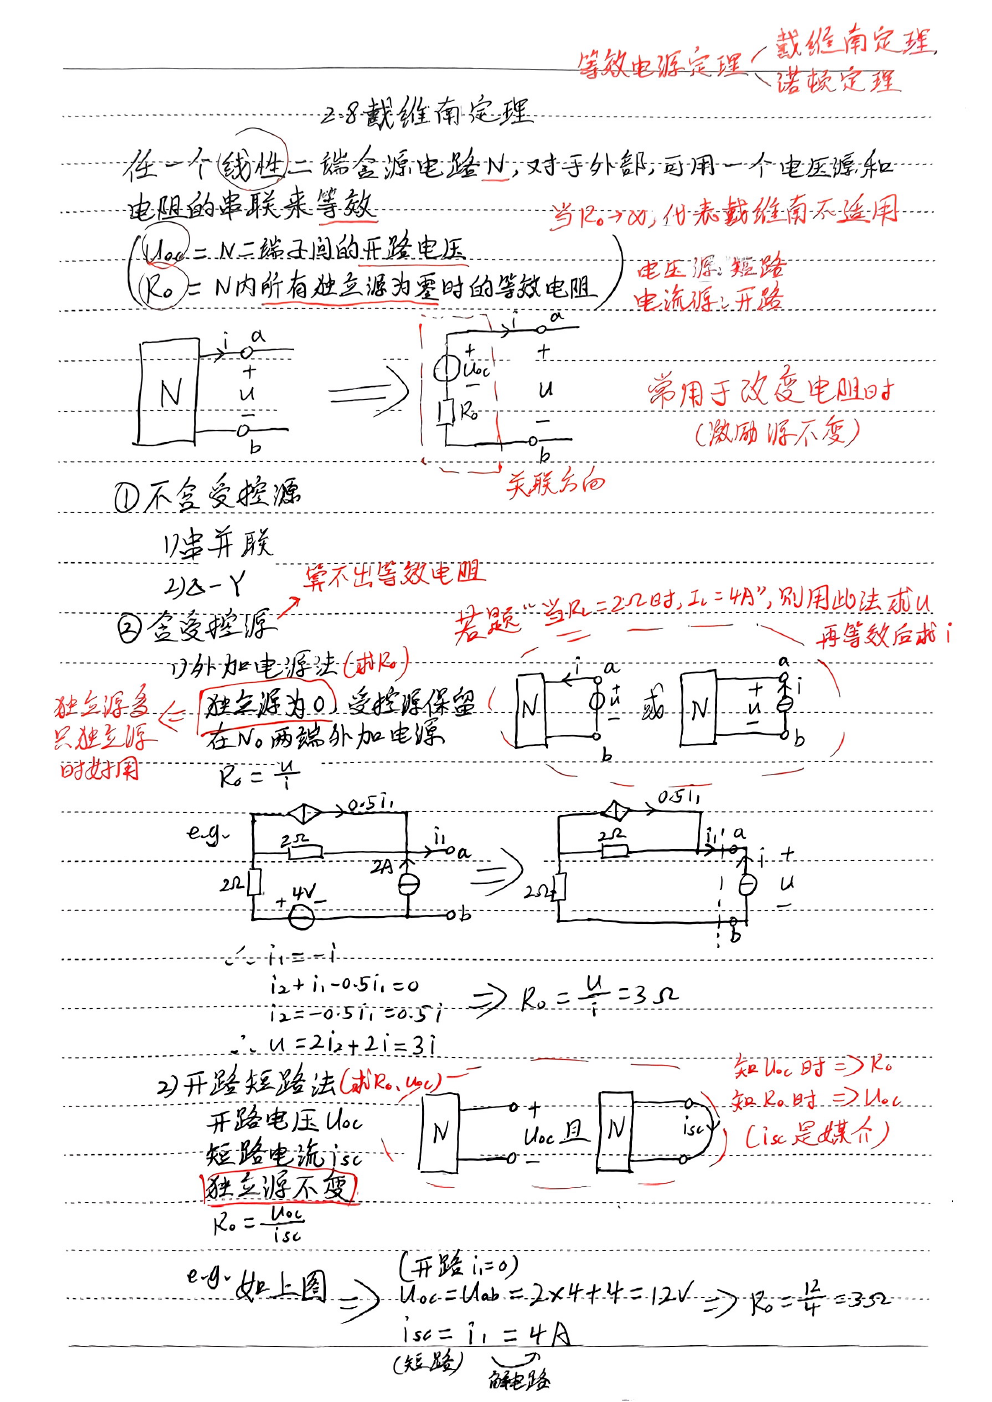 等效电源定理
戴维南定理.
诺顿定理
2.8戴维南定理
任一个线性二端含源电路N,对于外部,可用一个电压源和
电阻的串联来等效
当R₀→∞,代表戴维南不适用
Uoc=N二端子间的开路电压
R₀=N内所有独立源为零时的等效电阻
电压源:短路
电流源:开路
N i a + u - b
i a + Uoc - R₀ + u - b
常用于改变电阻时
(激励源不变)
关联方向
①不含受控源
1)串并联
2)Δ-Y
算不出等效电阻
②含受控源
若题"当RL=2Ω时,IL=4A",则用此法求u
再等效后求i
1)外加电源法(求R₀)
独立源为0,受控源保留
在N₀两端外加电源
R₀=u/i
独立源多
只独立源
时好用
N i a + u - b 或 N a i + u - b
e.g. 0.5i₁ 2Ω i₁ a 2A 2Ω + 4V - b
0.5i₁ 2Ω i₁ a i + u - 2Ω b
∵ i₁=-i
i₂+i₁-0.5i₁=0
i₂=-0.5i₁=0.5i
∴ u=2i₂+2i=3i
=> R₀=u/i=3Ω
2)开路短路法(求R₀、uoc)
开路电压Uoc
短路电流isc
独立源不变
R₀=uoc/isc
N + Uoc - 且 N isc
知Uoc时=>R₀
知R₀时=>Uoc
(isc是媒介)
e.g. 如上图 =>
(开路i₁=0)
Uoc=Uab=2×4+4=12V => R₀=12/4=3Ω
isc=i₁=4A
(短路)
解电路